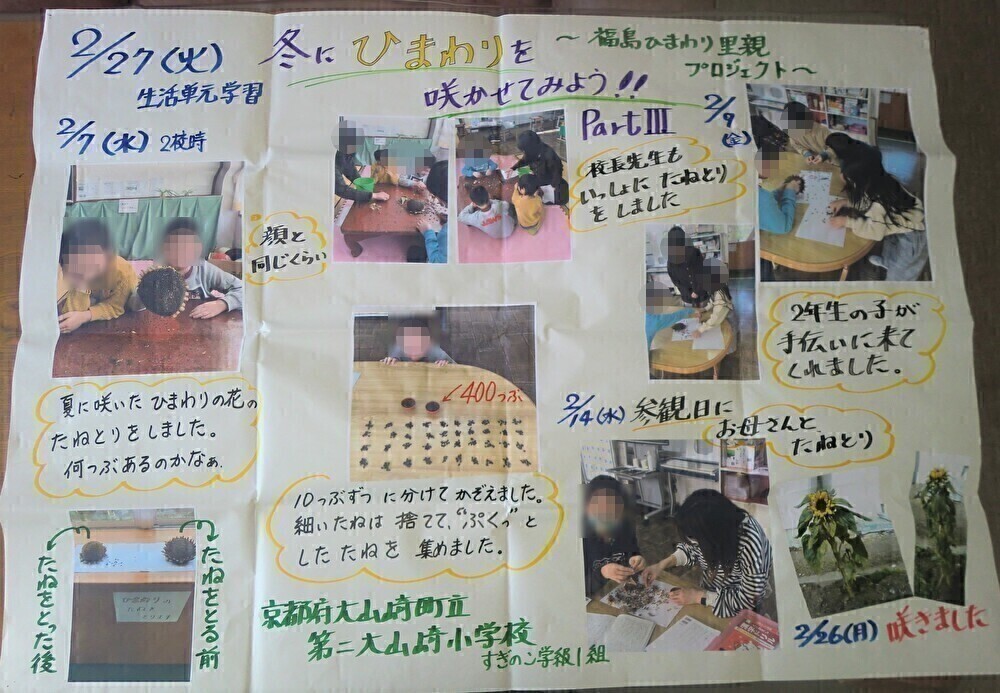 2/27(火)
生活単元学習
冬にひまわりを
咲かせてみよう!!
〜福島ひまわり里親
プロジェクト〜
Part Ⅲ
2/7(水) 2校時
顔と
同じくらい
夏に咲いた ひまわりの花の
たねとりをしました。
何つぶあるのかなぁ.
たねをとった後
たねをとる前
400つぶ
10つぶずつ に分けて かぞえました。
細いたねは 捨てて、"ぷくっ"と
した たねを 集めました。
2/9(金)
校長先生も
いっしょに たねとり
をしました
2年生の子が
手伝いに来て
くれました。
2/14(水) 参観日に
お母さんと
たねとり
2/26(月) 咲きました
京都府大山崎町立
第二大山崎小学校
すぎのこ学級1組